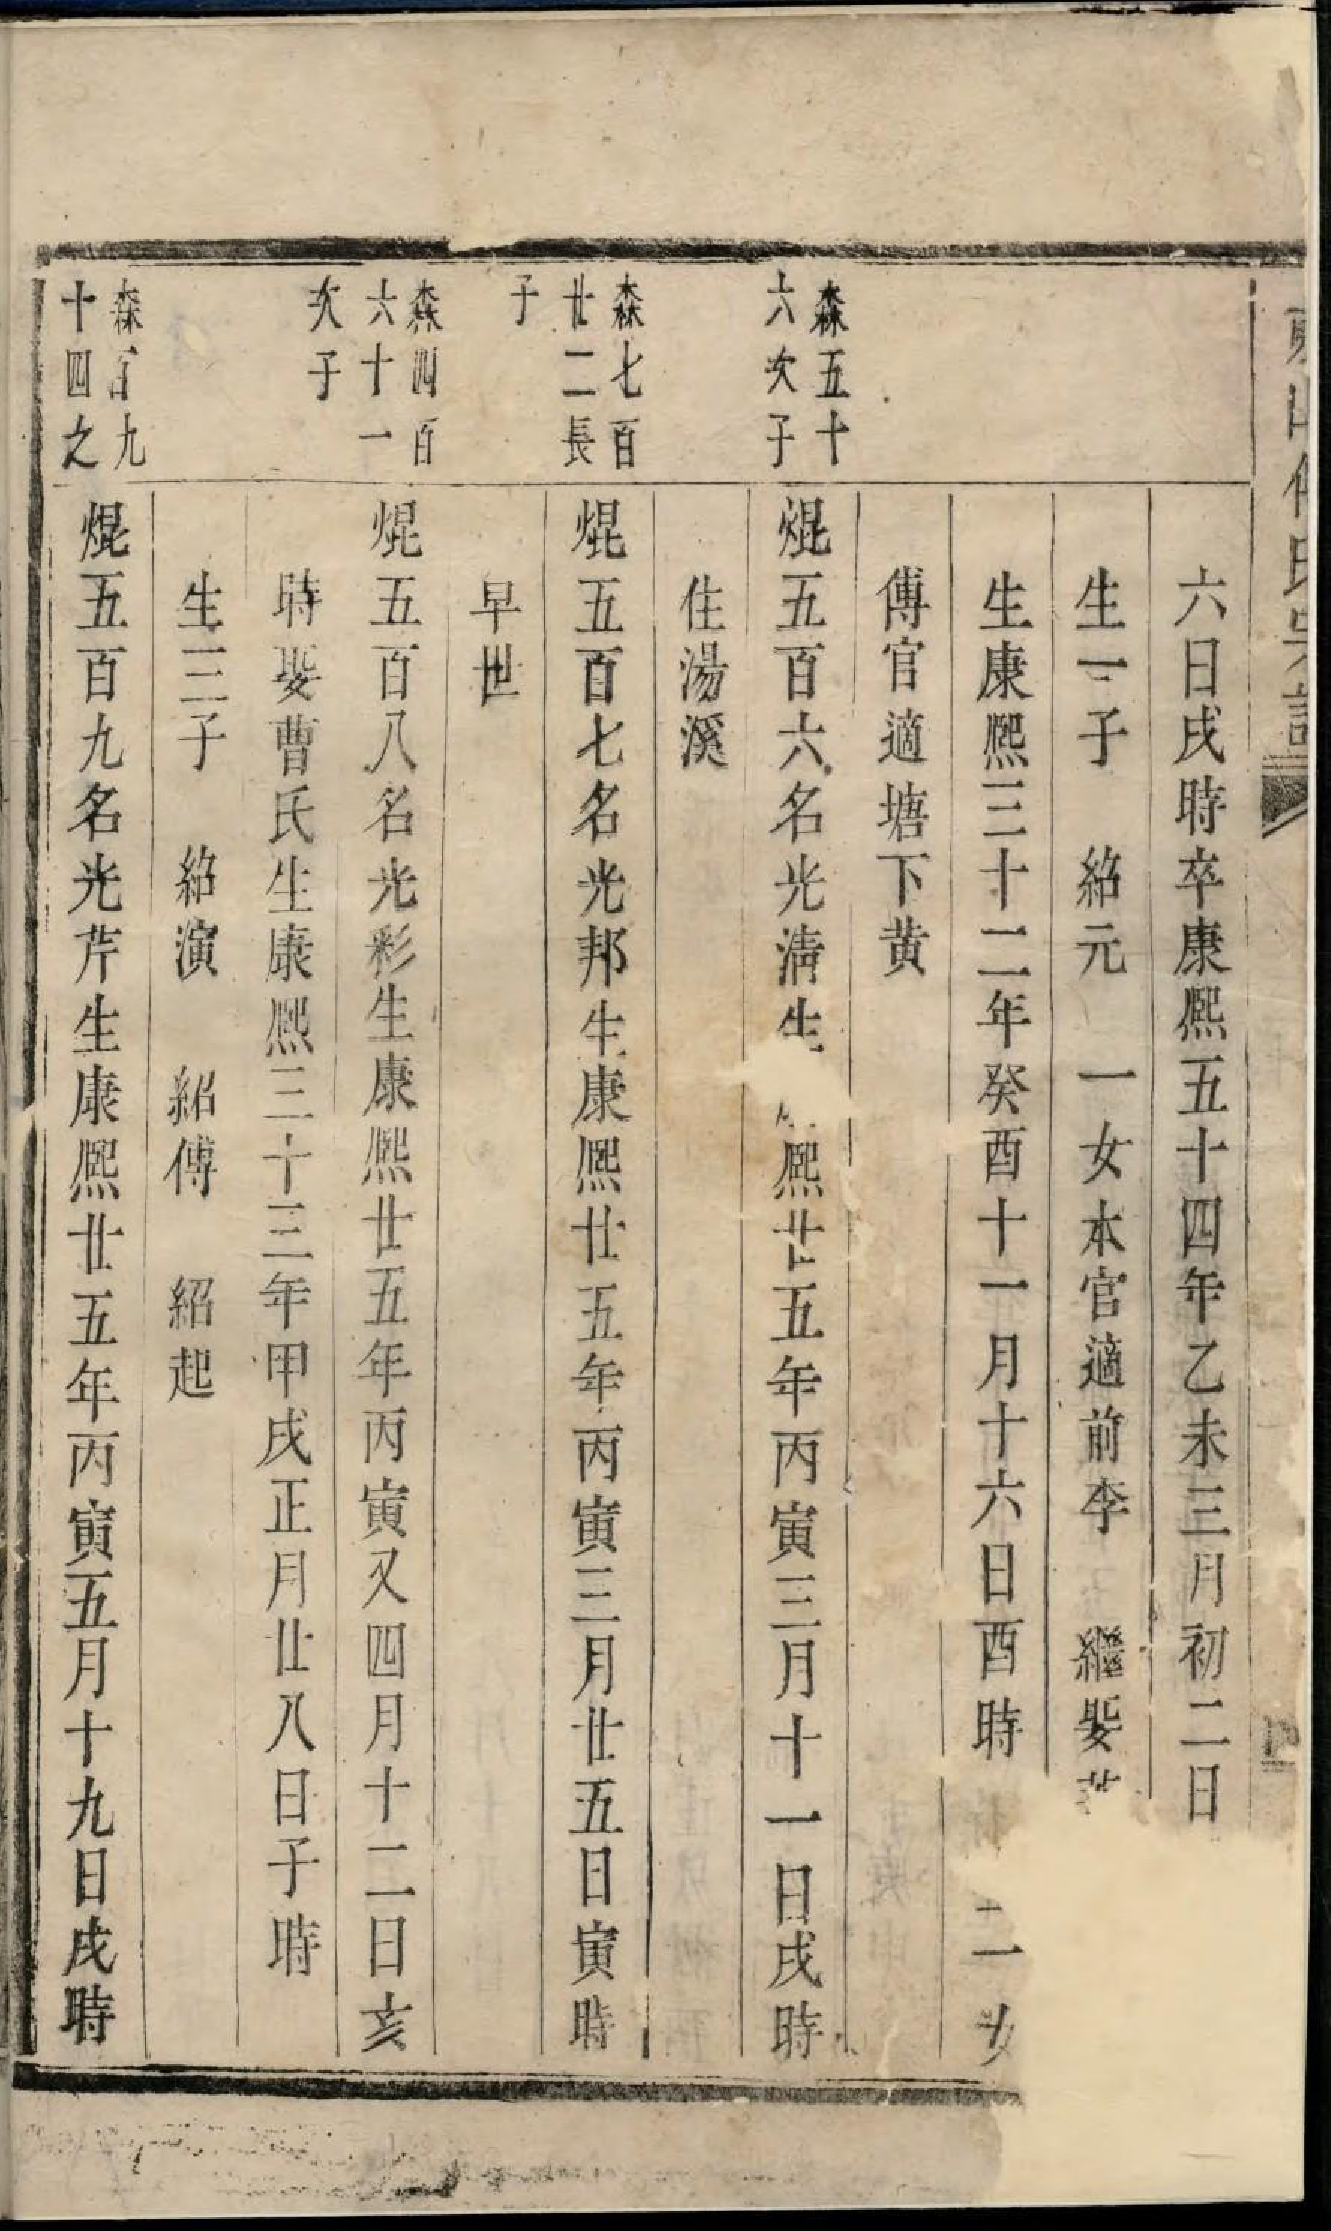 六日戌時卒康熙五十四年乙未三月初二日
生一子　紹元　一女本官適前李　繼娶
生康熙三十二年癸酉十一月十六日酉時　二女
傅官適塘下黄
森五十
六次子
焜五百六名光淸生　熙廿五年丙寅三月十一日戌時
住湯溪
森七百
廿二長
子
焜五百七名光邦生康熙廿五年丙寅三月廿五日寅時
早世
森四百
六十一
次子
焜五百八名光彩生康熙廿五年丙寅又四月十二日亥
時娶曹氏生康熙三十三年甲戌正月廿八日子時
生三子　紹演　紹傅　紹起
森百九
十四之
焜五百九名光芹生康熙廿五年丙寅五月十九日戌時